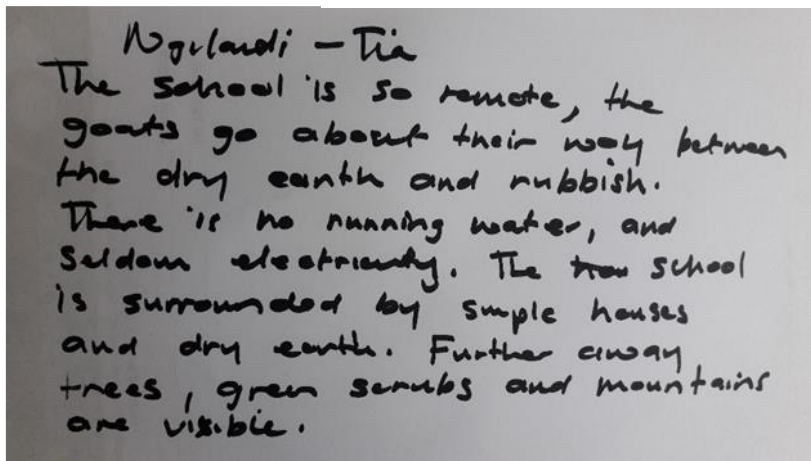 - Tia
The school is so remote, the
goats go about their way between
the dry earth and rubbish.
There is no running water, and
seldom electricity. The school
is surrounded by simple houses
and dry earth. Further away
trees, green scrubs and mountains
are visible.